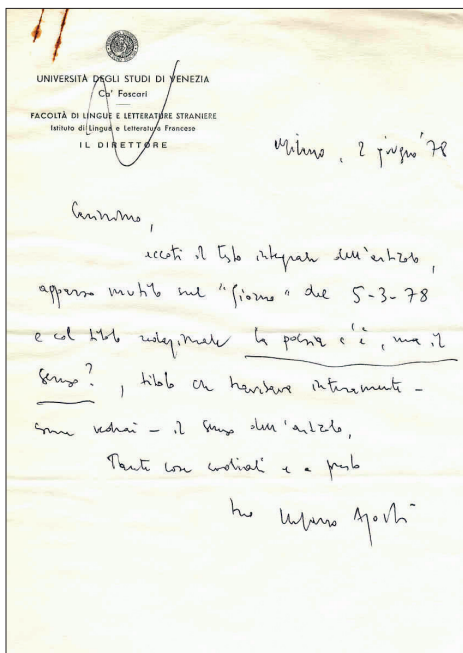 UNIVERSITÀ DEGLI STUDI DI VENEZIA
Ca' Foscari
FACOLTÀ DI LINGUE E LETTERATURE STRANIERE
Istituto di Lingua e Letteratura Francese
IL DIRETTORE
Milano, 2 giugno '78
Carissimo,
eccoti il testo integrale dell'articolo,
apparso mutilo sul "Giorno" del 5-3-78
e col titolo redazionale la poesia c'è, ma il
senso?, titolo che travisava interamente –
come vedrai – il senso dell'articolo.
Tante cose cordiali e a presto
tuo Stefano Agosti